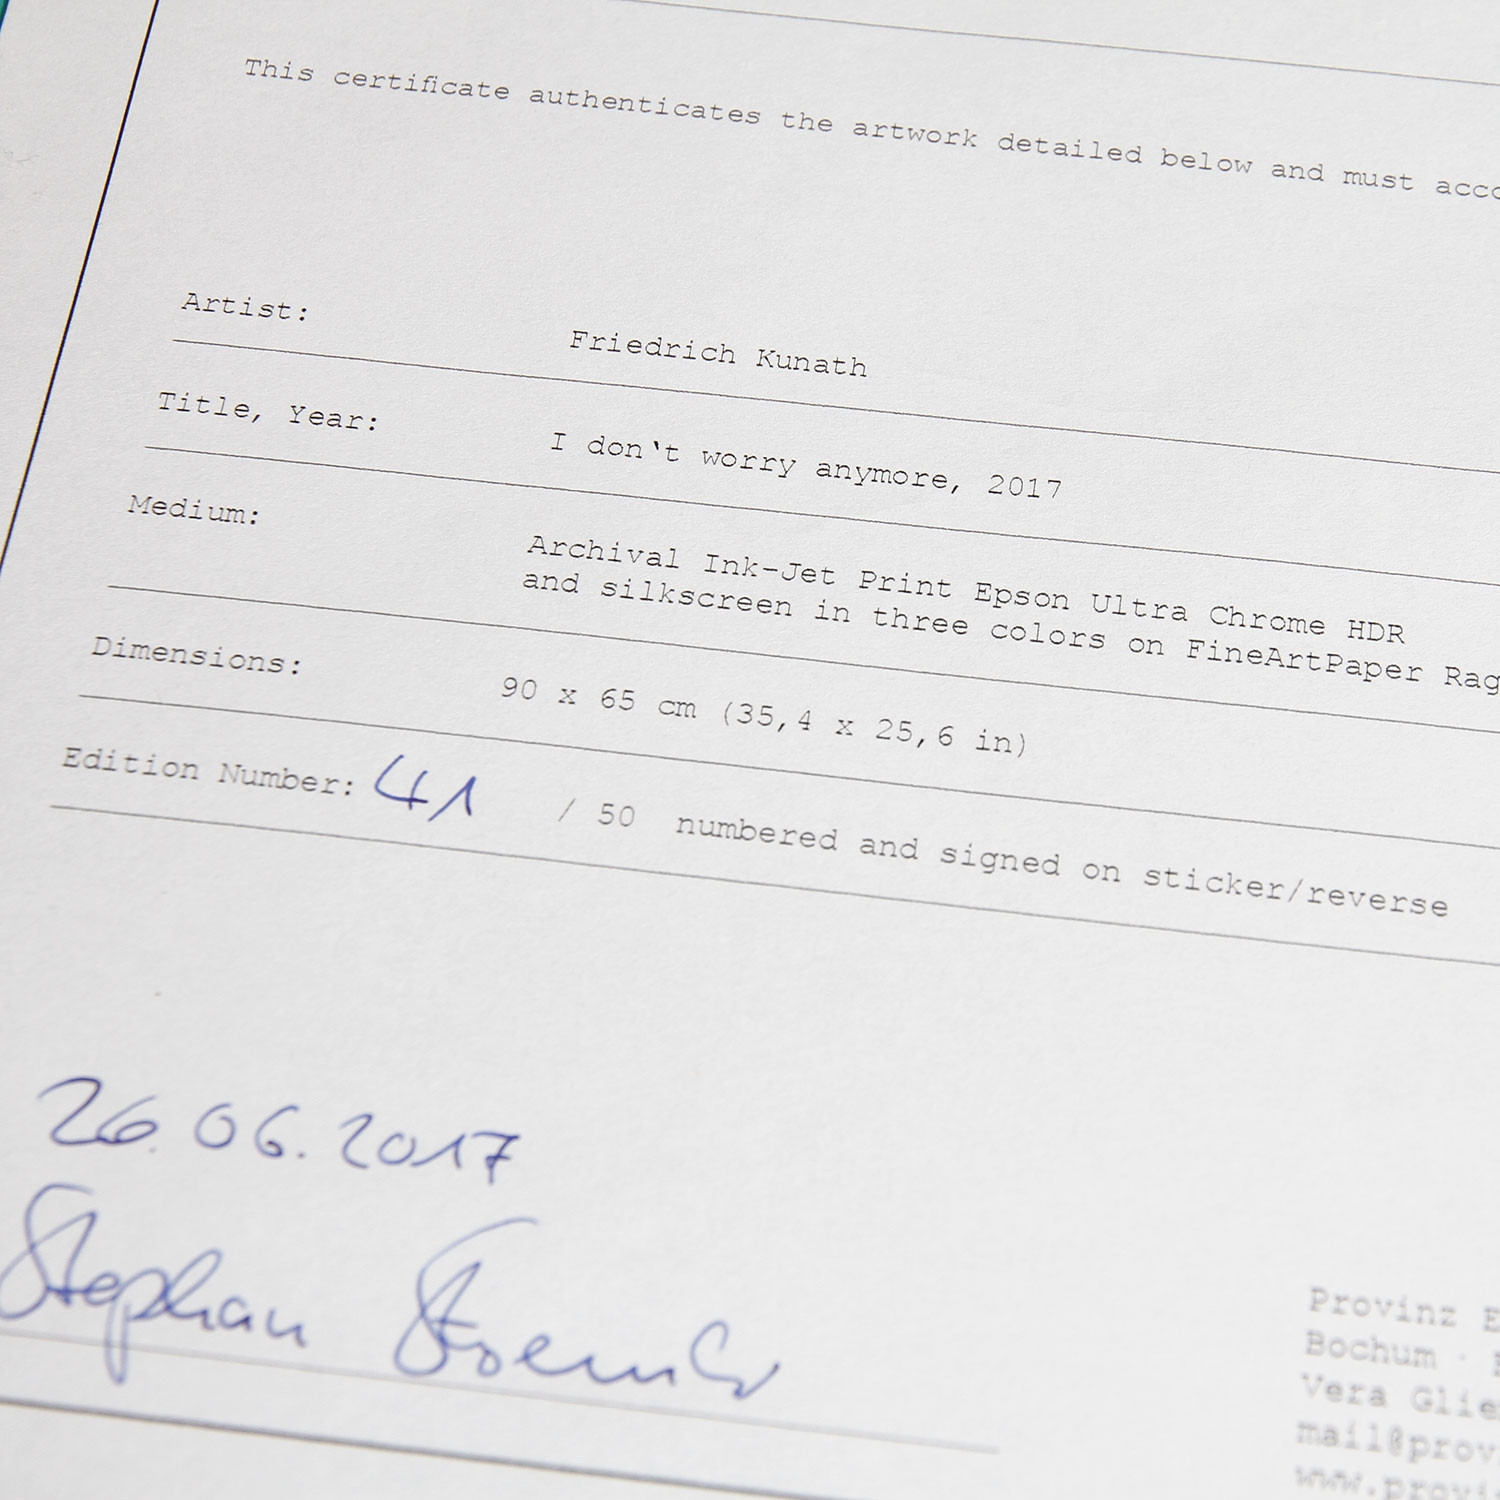 This certificate authenticates the artwork detailed below and must acco
Artist: Friedrich Kunath
Title, Year: I don‘t worry anymore, 2017
Medium: Archival Ink-Jet Print Epson Ultra Chrome HDR
and silkscreen in three colors on FineArtPaper Rag
Dimensions: 90 x 65 cm (35,4 x 25,6 in)
Edition Number: 41 / 50 numbered and signed on sticker/reverse
26.06.2017
Stephan
Provinz E
Bochum ·
Vera Glie
mail@prov
www.provi